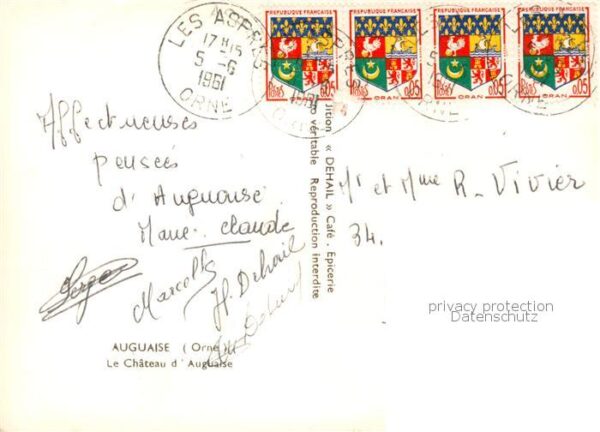 LES ASPRES
17 H 15
5 - 6
1961
ORNE
REPUBLIQUE FRANÇAISE
REPUBLIQUE FRANÇAISE
REPUBLIQUE FRANÇAISE
REPUBLIQUE FRANÇAISE
POSTES ORAN 0,05
POSTES ORAN 0,05
POSTES ORAN 0,05
POSTES ORAN 0,05
Affectueuses
pensées
d'Auguaise.
Marie-Claude
Serge
Marcelle
H. Dehail
Dehail
ition « DEHAIL » Café . Epicerie
o véritable Reproduction interdite
Mr et Mme R. Vivier
34.
privacy protection
Datenschutz
AUGUAISE (Orne
Le Château d'Auguaise